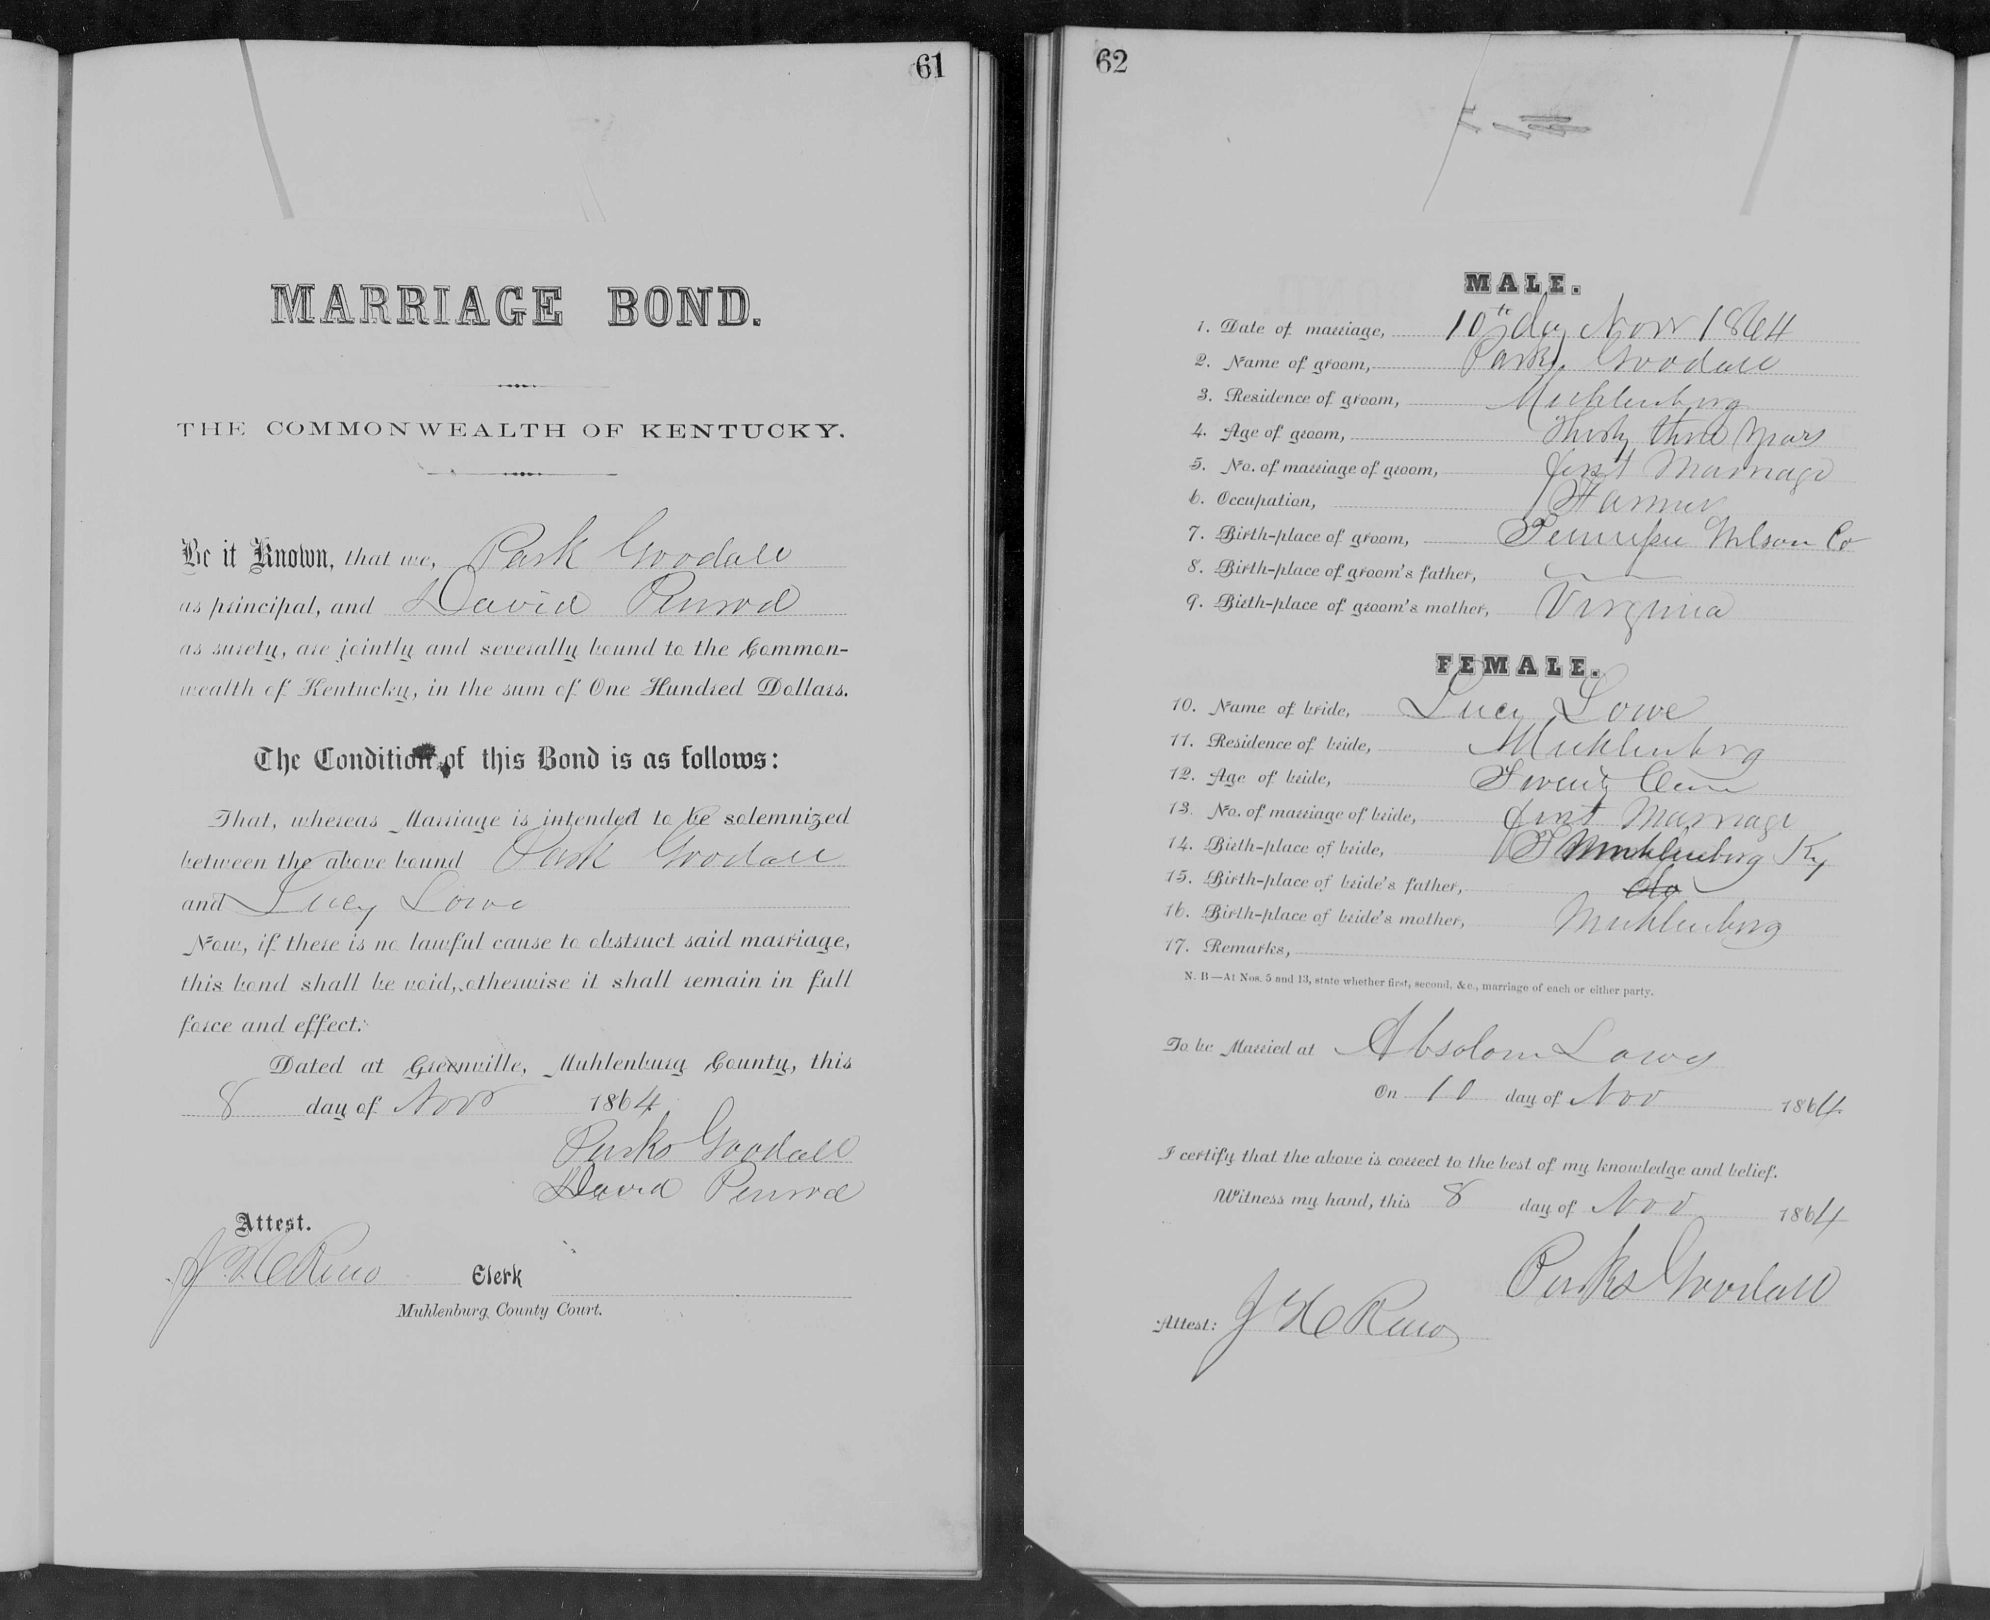 61
MARRIAGE BOND.
THE COMMONWEALTH OF KENTUCKY.
Be it Known, that we, Park Goodall
as principal, and David Penrod
as surety, are jointly and severally bound to the Common-
wealth of Kentucky, in the sum of One Hundred Dollars.
The Condition of this Bond is as follows:
That, whereas Marriage is intended to be solemnized
between the above bound Park Goodall
and Lucy Lowe
Now, if there is no lawful cause to obstruct said marriage,
this bond shall be void, otherwise it shall remain in full
force and effect.
Dated at Greenville, Muhlenburg County, this
8 day of Nov 1864
Parks Goodall
David Penrod
Attest.
J. H. Reno Clerk
Muhlenburg County Court.
62
MALE.
1. Date of marriage, 10th day Nov 1864
2. Name of groom, Parks Goodall
3. Residence of groom, Muhlenburg
4. Age of groom, Thirty three Years
5. No. of marriage of groom, first Marriage
6. Occupation, Farmer
7. Birth-place of groom, Tennessee Wilson Co
8. Birth-place of groom's father,
9. Birth-place of groom's mother, Virginia
FEMALE.
10. Name of bride, Lucy Lowe
11. Residence of bride, Muhlenburg
12. Age of bride, Twenty One
13. No. of marriage of bride, first Marriage
14. Birth-place of bride, Muhlenburg Ky
15. Birth-place of bride's father, do
16. Birth-place of bride's mother, Muhlenburg
17. Remarks,
N. B—At Nos. 5 and 13, state whether first, second, &c., marriage of each or either party.
To be Married at Absolom Lowes
On 10 day of Nov 1864
I certify that the above is correct to the best of my knowledge and belief.
Witness my hand, this 8 day of Nov 1864
Parks Goodall
Attest: J H Reno